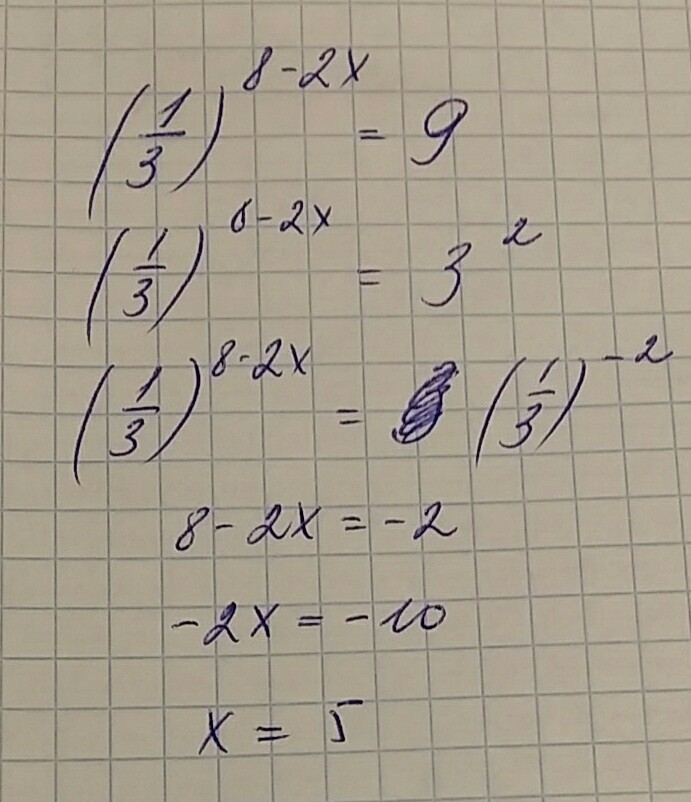 (1/3)^(8-2x) = 9
(1/3)^(6-2x) = 3^2
(1/3)^(8-2x) = (1/3)^(-2)
8-2x = -2
-2x = -10
x = 5